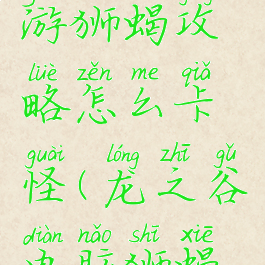 游狮蝎攻
lüè zěn me qiǎ
略怎么卡
guài lóng zhī gǔ
怪(龙之谷
diàn nǎo shī xiē
电脑狮蝎